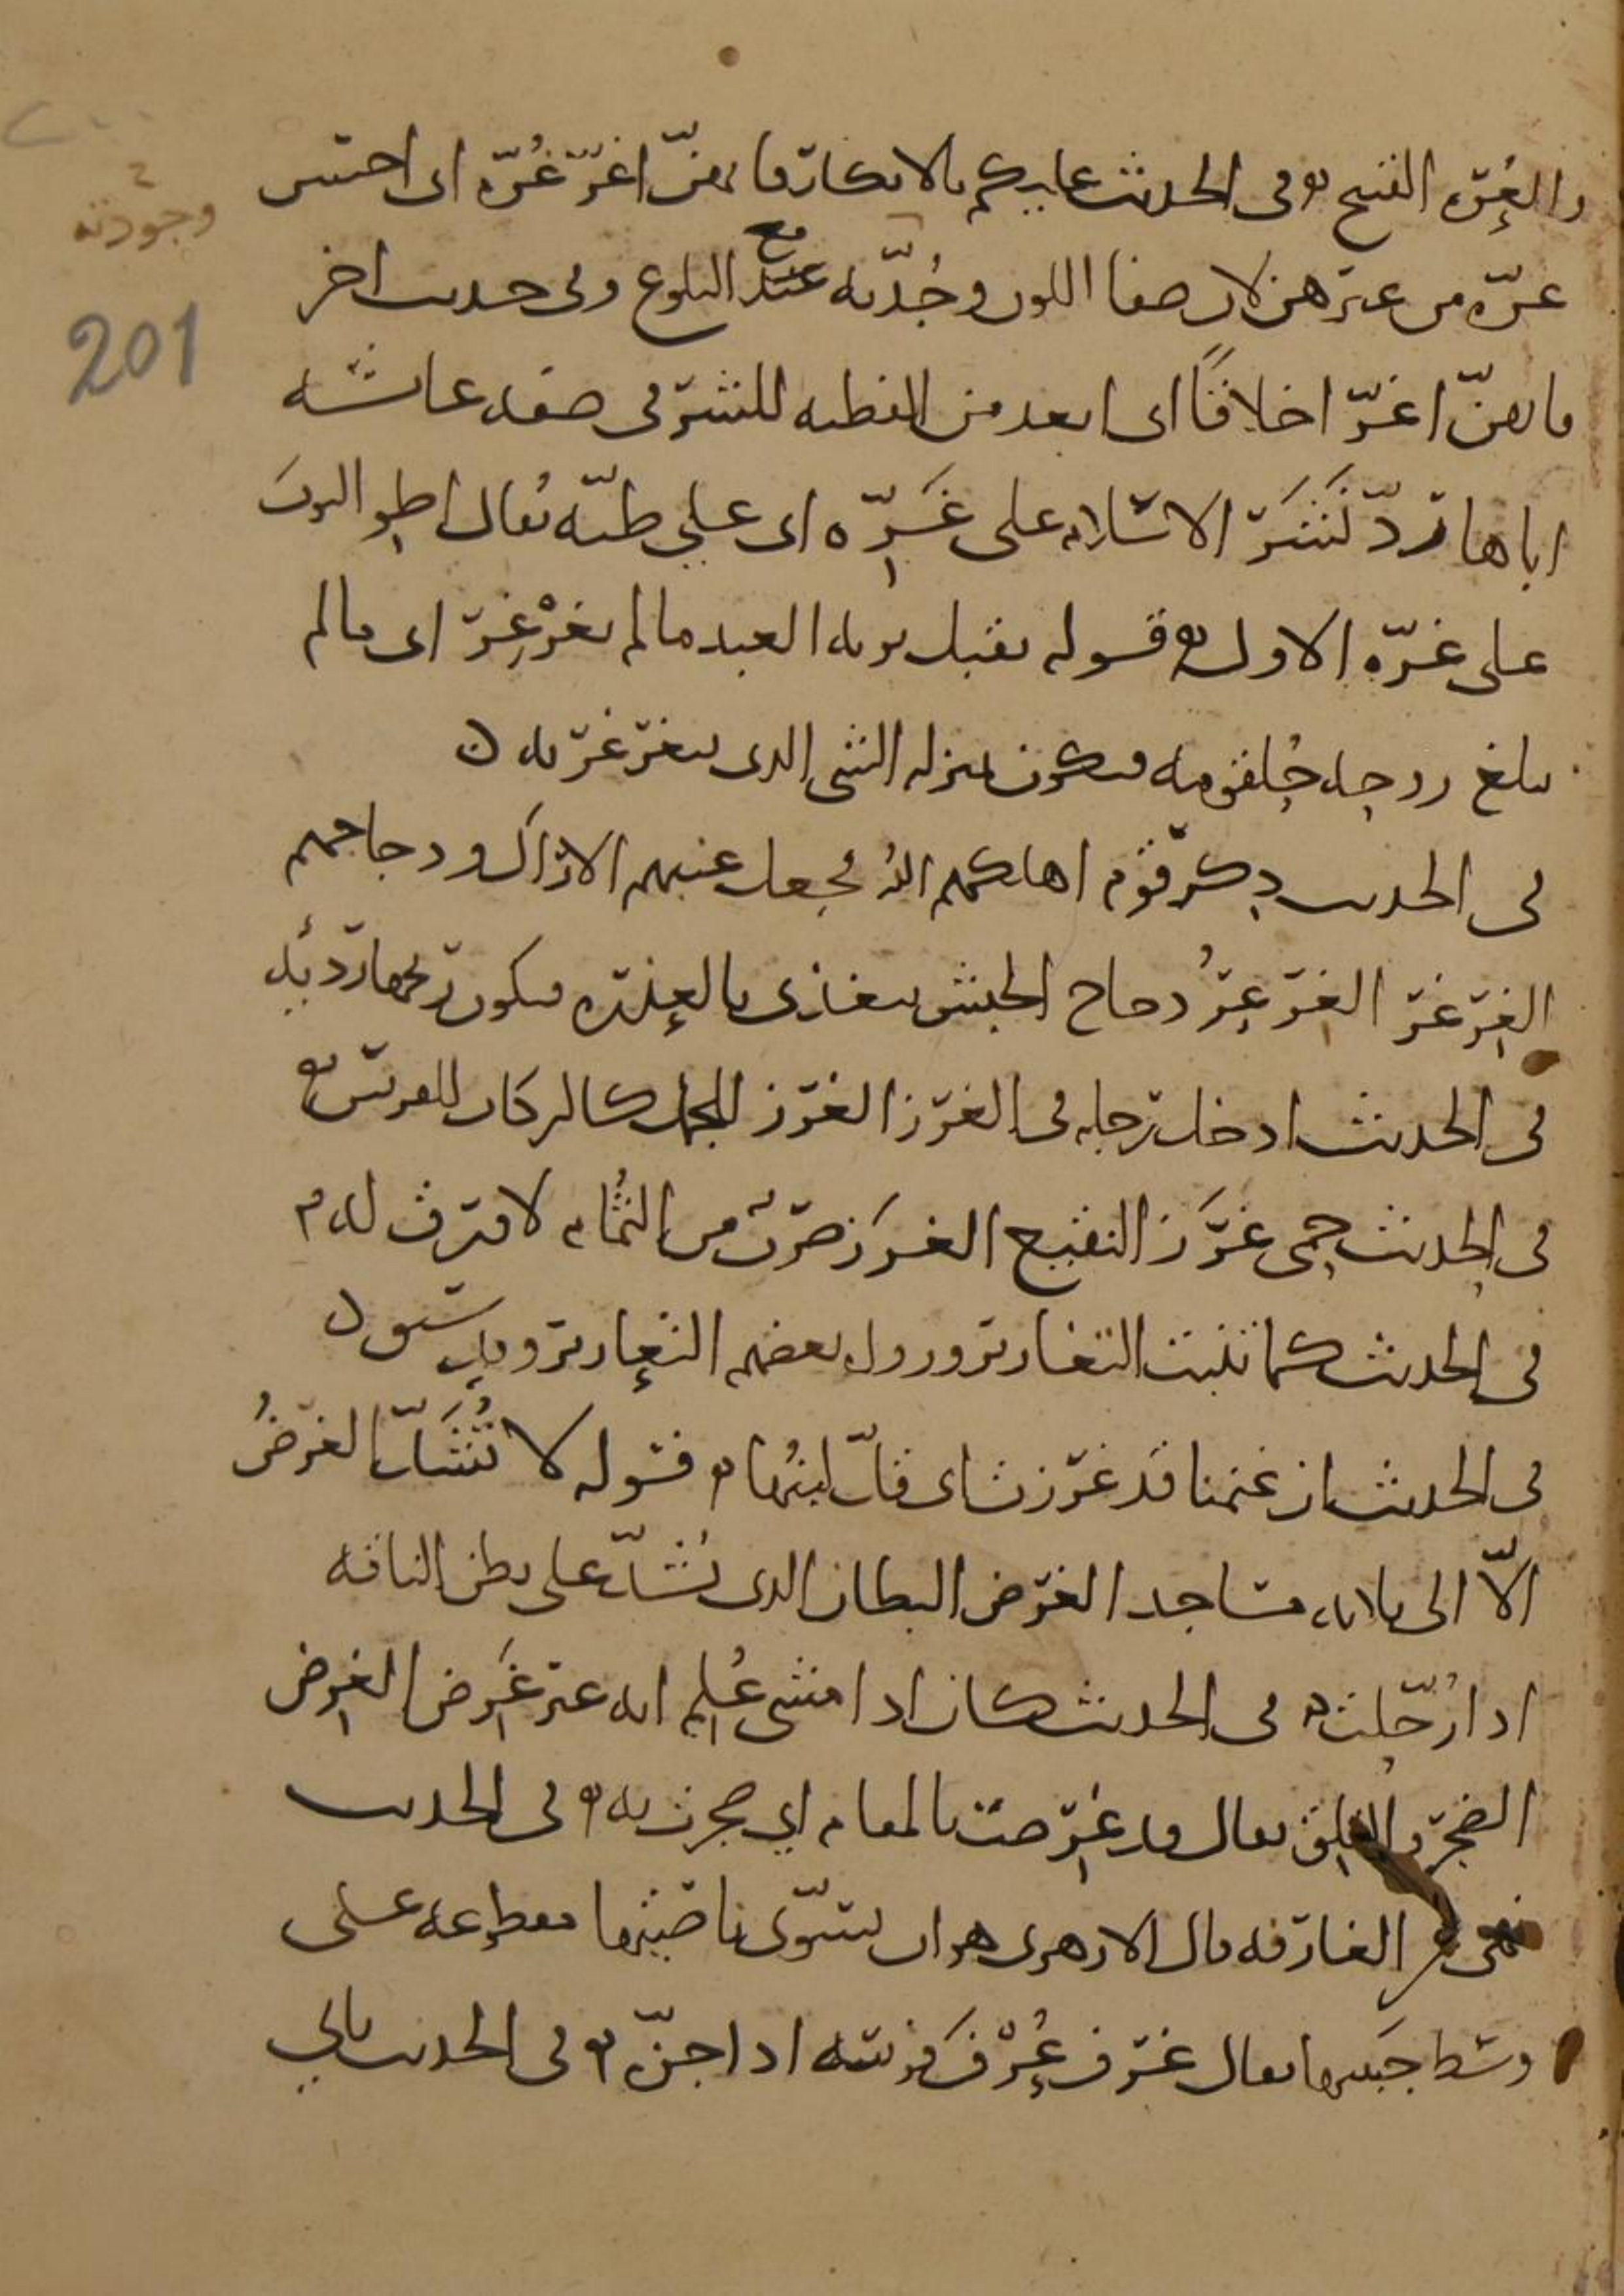 والغِرّه الفتح وفى الحديث عليكم بالابكار فانهنّ اغرّ غُرّه اى احسن
غرّه من غيرهن لان صفا اللون وجُدّته عند البلوغ وفى حديث اخر
مع
وجودته
201
فانهنّ اغرّ اخلاقًا اى ابعد من الفطنه للشر فى صفه عائشه
اباها ردّ نَشَر الاسلام على غَرِّه اى على طيّه يُقال اطو الثوبَ
على غَرّه الاول قوله يقبل توبه العبد مالم يغرْغِر اى مالم
يبلغ روحه حُلقومه فيكون بمنزله الشى الذى يتغرغر به
فى الحديث ذكر قوم اهلكهم الله فجعل عنبهم الاراك ودجاجهم
الغِرغِر الغِرغِرُ دجاج الحبش يتغذى بالعذره فيكون لحمها رديًا
فى الحديث ادخل رجله فى الغرز الغرز للجمل كالركاب للفرس
فى الحديث حمى غَرَز النقيع الغَرَز ضرب من الثُمام لا ورق له
فى الحديث كما تنبت التغارير وروى بعضهم الثعارير وقد سبق
فى الحديث ان غنمنا قد غرزت اى قلّ لبنُها قوله لا تُشَدّ الغرضُ
الاّ الى ثلاثه مساجد الغرض البطان الذى يُشدّ على بطن الناقه
اذا رُحّلت فى الحديث كان اذا مشى عُلم انه غير غَرِض الغَرِض
الضجر والقلق يقال قد غَرِضت بالمقام اى ضجرت به فى الحديث
نهى عن الغارفه قال الازهرى هو ان تسوّى ناصيتها مقطوعه على
وسط جَبينها يقال غرف عُرْفَ فرسه اذا جزّه فى الحديث